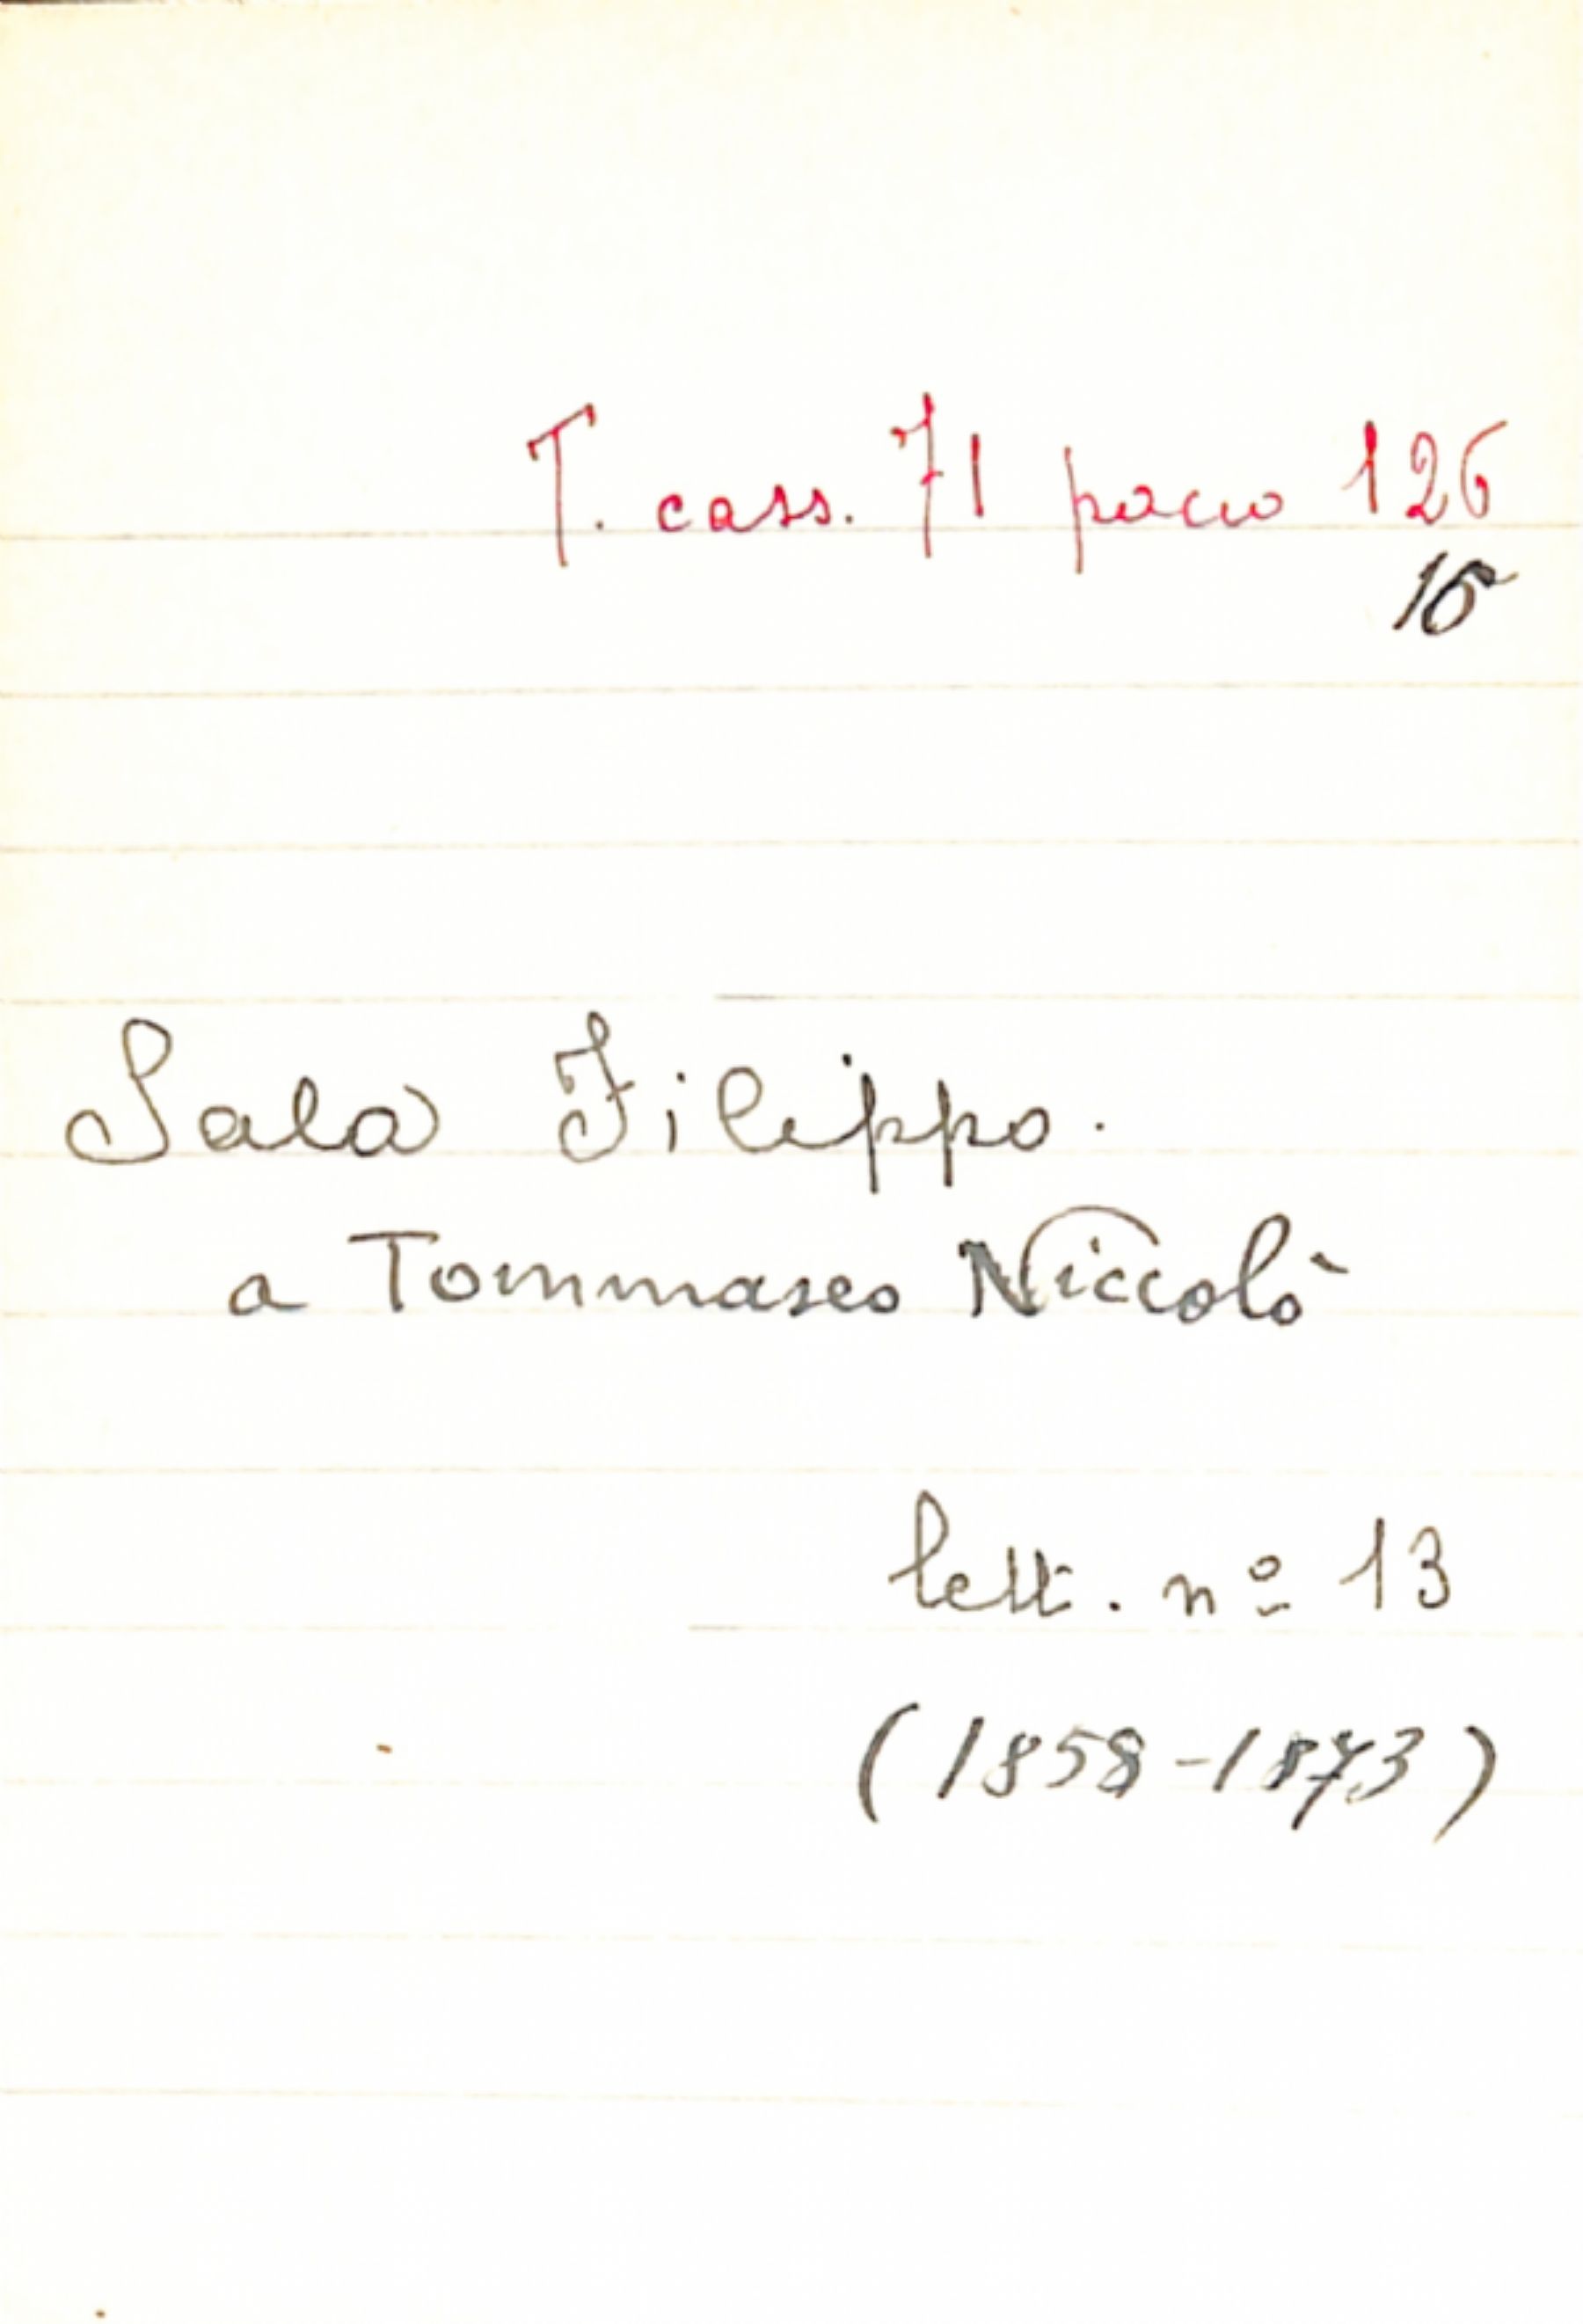 T. cass. 71 pacco 126
16
Sala Filippo.
a Tommaseo Niccolò
lett. nº 13
(1858-1873)